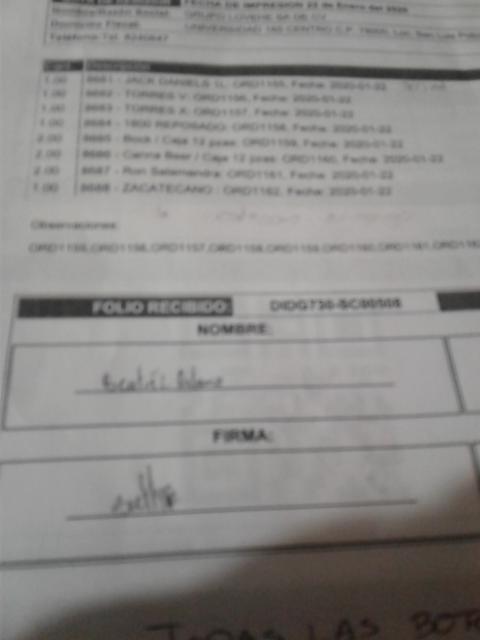 FECHA DE IMPRESION 22 de Enero del 2020
Nombre/Razón Social: GRUPO LOVEHE SA DE CV
Domicilio Fiscal: UNIVERSIDAD 165 CENTRO C.P. 78000, Loc. San Luis
Teléfono: Tel. 8240847
Cant. Descripcion
1.00 8681 - JACK DANIELS 1L: ORD1155, Fecha: 2020-01-22
1.00 8682 - TORRES V: ORD1156, Fecha: 2020-01-22
1.00 8683 - TORRES X: ORD1157, Fecha: 2020-01-22
1.00 8684 - 1800 REPOSADO: ORD1158, Fecha: 2020-01-22
2.00 8685 - Bock / Caja 12 pzas: ORD1159, Fecha: 2020-01-22
2.00 8686 - Canna Beer / Caja 12 pzas: ORD1160, Fecha: 2020-01-22
2.00 8687 - Ron Salamandra: ORD1161, Fecha: 2020-01-22
1.00 8688 - ZACATECANO: ORD1162, Fecha: 2020-01-22
Observaciones:
ORD1155,ORD1156,ORD1157,ORD1158,ORD1159,ORD1160,ORD1161,ORD1162
FOLIO RECIBIDO: DIDG730-SC00508
NOMBRE:
Beatriz
FIRMA:
TODAS LAS BOT